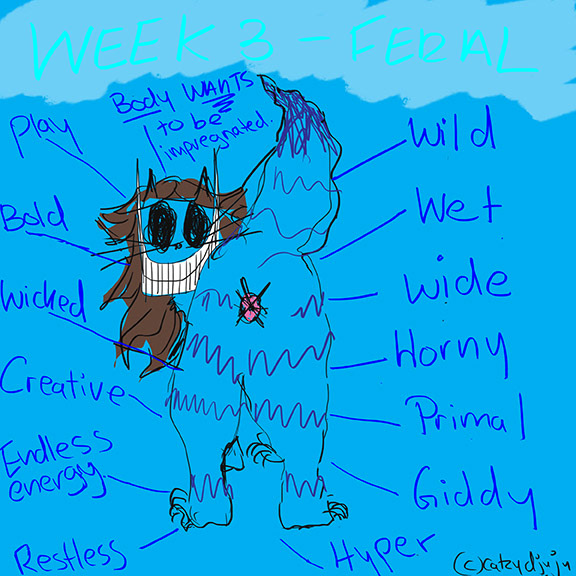 WEEK 3 - FERAL
Body WANTS
to be
impregnated.
Play
Bold
Wicked
Creative
Endless
energy
Restless
Wild
Wet
Wide
Horny
Primal
Giddy
Hyper
(c)catzydjuju